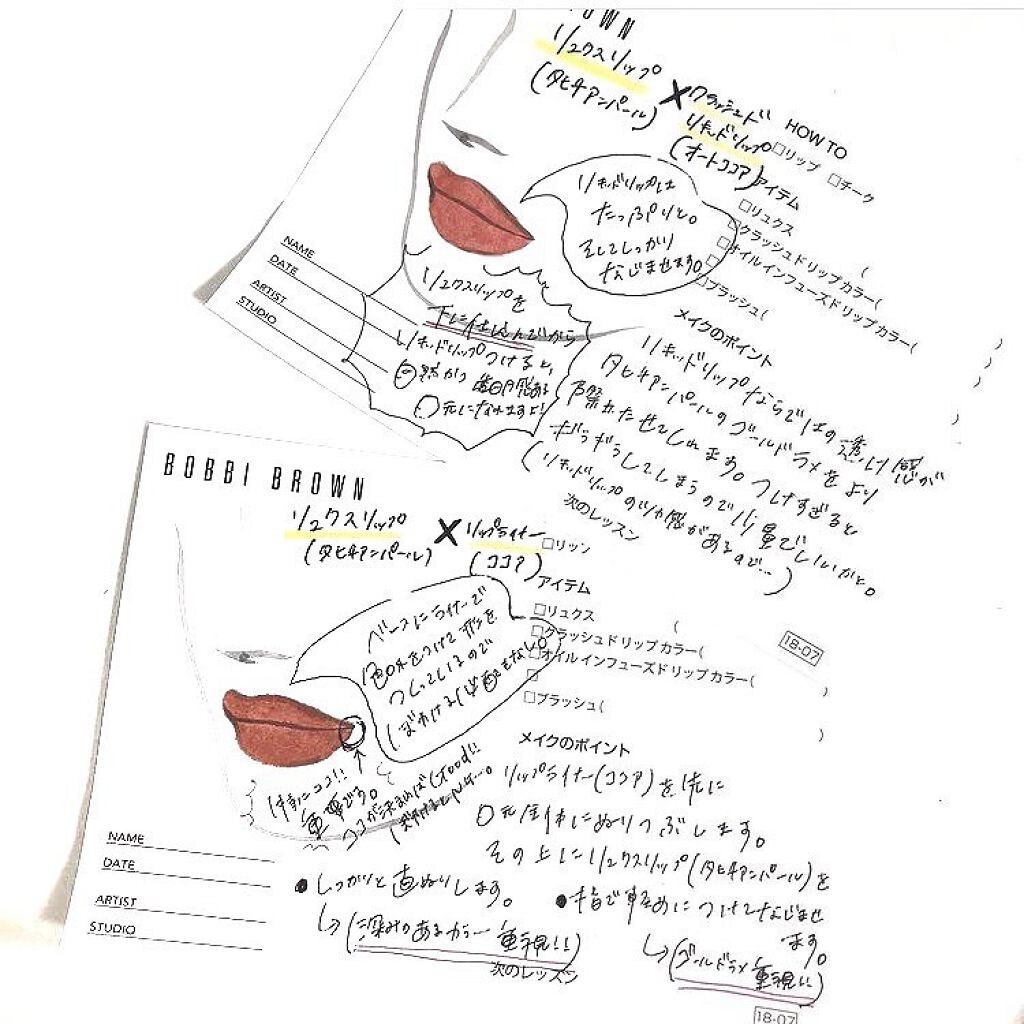 OWN
リュクスリップ
(タヒチアンパール)
×
クラッシュド
リキッドリップ
(オートココア)
HOW TO
□リップ □チーク
アイテム
□リュクス
□クラッシュドリップカラー(
□オイルインフューズドリップカラー(
□
□ブラッシュ(
リキッドリップは
たっぷりと。
そしてしっかり
なじませる。
NAME
DATE
ARTIST
STUDIO
リュクスリップを
下に仕込んでから
リキッドリップつけると、
歯口感ある
口元になれますよ!
メイクのポイント
リキッドリップならではの透け感が
タヒチアンパールのゴールドラメをより
際立たせてくれます。つけすぎると
ギラギラしてしまうので少量でいいかと。
(リキッドリップのツヤ感があるので…)
次のレッスン
18-07
BOBBI BROWN
リュクスリップ
(タヒチアンパール)
×
リップライナー
(ココア)
□リッン
アイテム
□リュクス
(
□クラッシュドリップカラー(
□オイルインフューズドリップカラー(
□
□ブラッシュ(
ベースにライナーで
色味をつけて形を
つくっているので
ぼかける心配もない。
特にココ!!
重要である。
ココが決まればGood!!
メイクのポイント
リップライナー(ココア)を先に
口元全体にぬりつぶします。
その上にリュクスリップ(タヒチアンパール)を
●しっかりと直ぬりします。
↳(深みのあるカラー重視!!)
●指で軽めにつけてなじませ
ます。
↳(ゴールドラメ重視!!)
NAME
DATE
ARTIST
STUDIO
次のレッスン
18-07